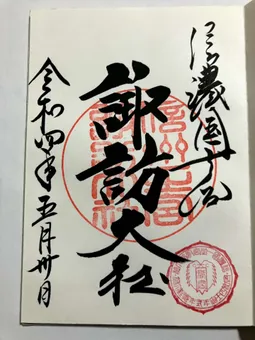 信濃國一之宮
諏訪大社
令和四年五月卅日